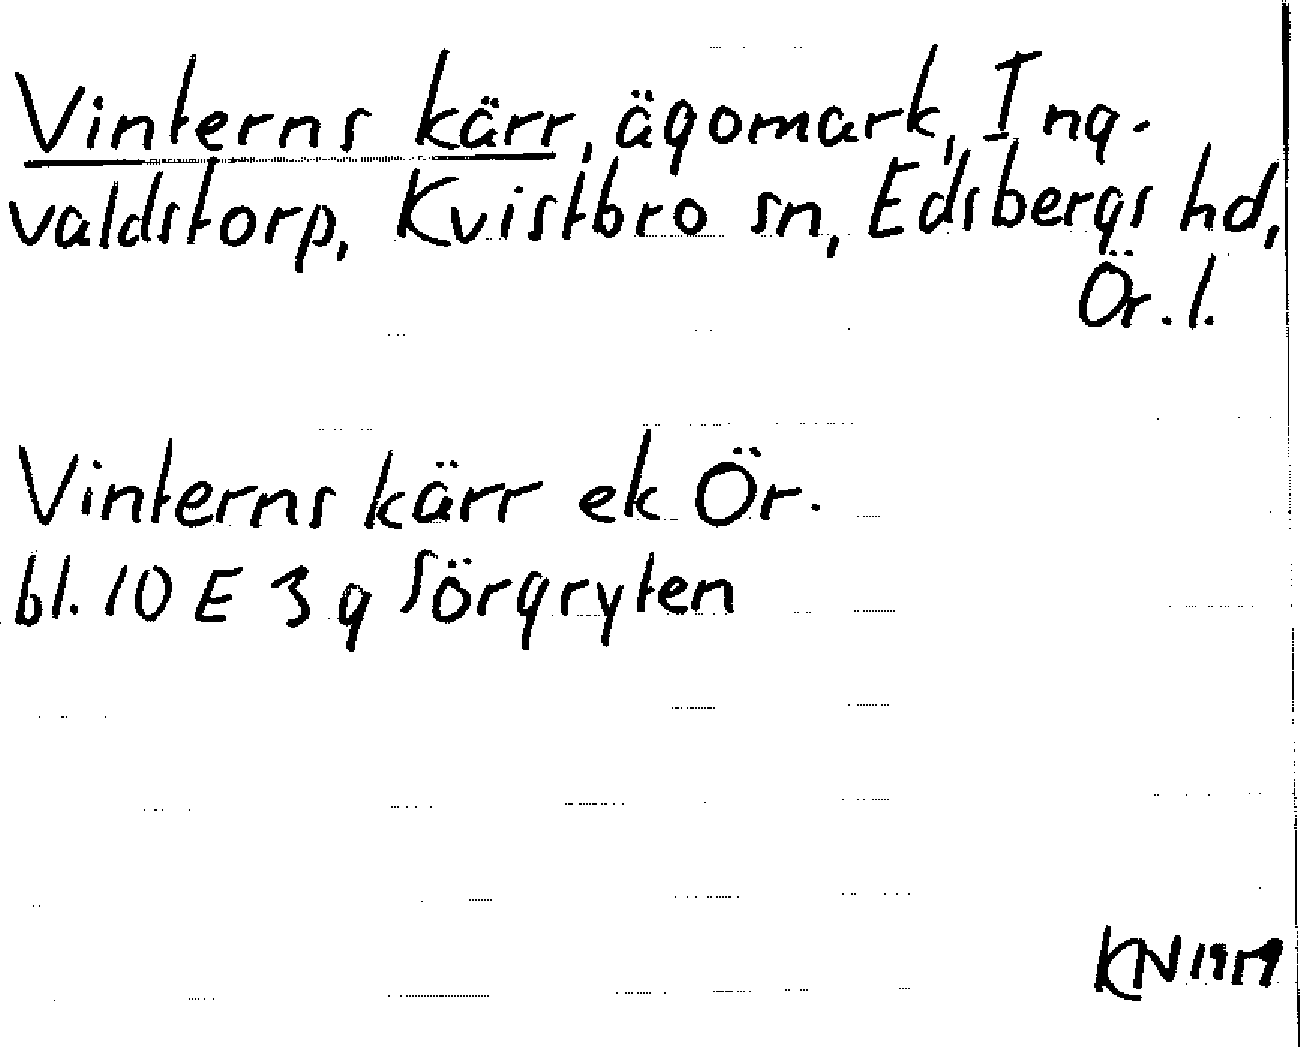 Vinterns kärr, ägomark, Ing-
valdstorp, Kvistbro sn, Edsbergs hd,
Ör. l.
Vinterns kärr ek Ör.
bl. 10 E 3 g Sörgryten
KN